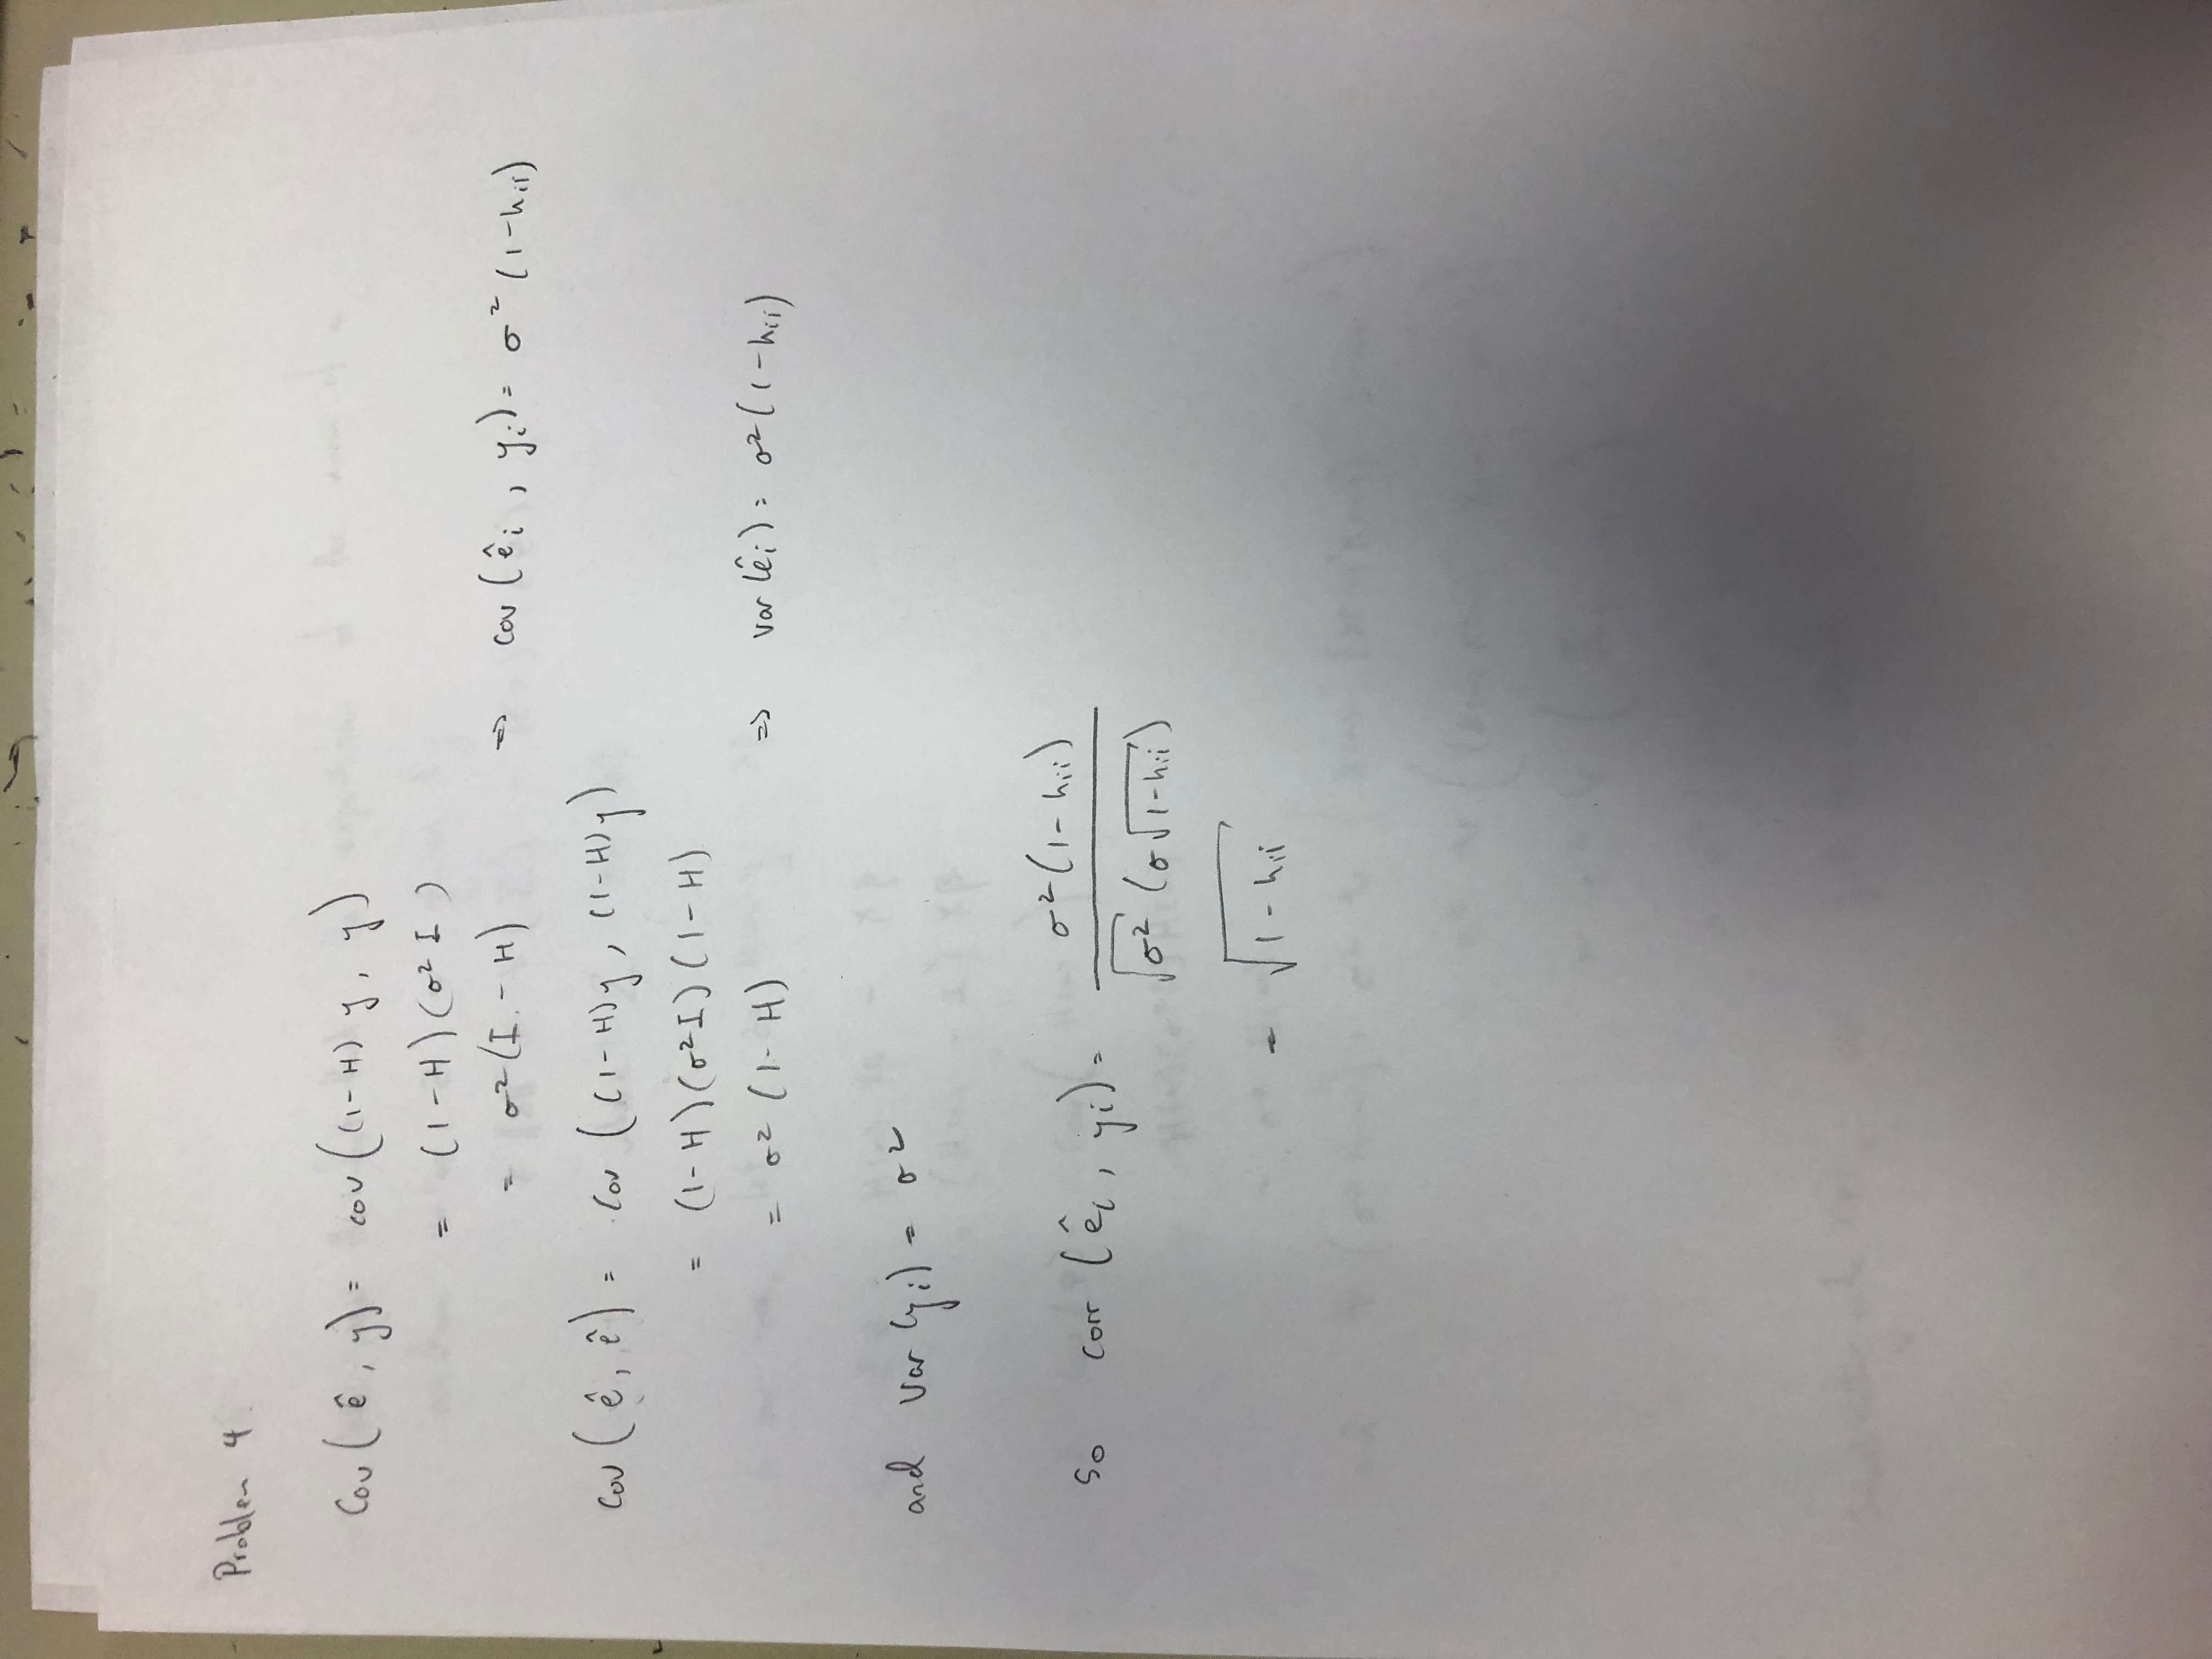 Problem 4.
Cov(ê, y) = cov((1-H)y, y)
= (1-H)(σ²I)
= σ²(I-H) ⇒ cov(ê_i, y_i) = σ²(1-h_ii)
Cov(ê, ê) = Cov((1-H)y, (1-H)y)
= (1-H)(σ²I)(1-H)
= σ²(1-H) ⇒ var(ê_i) = σ²(1-h_ii)
and Var(y_i) = σ²
So corr(ê_i, y_i) = σ²(1-h_ii) / √σ² (σ√1-h_ii)
= √1-h_ii